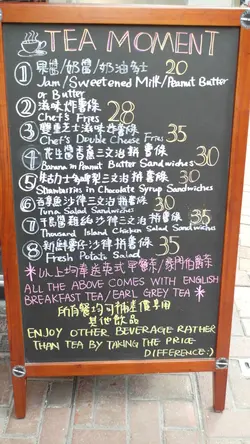 TEA MOMENT
① 果醬/奶醬/奶油多士 20
Jam/Sweetened Milk/Peanut Butter
or Butter
② 滋味炸薯條 28
Chef's Fries
③ 雙重芝士滋味炸薯條 35
Chef's Double Cheese Fries
④ 花生醬香蕉三文治拼薯條 30
Banana in Peanut Butter Sandwiches
⑤ 三文治拼薯條 30
Strawberries in Chocolate Syrup Sandwiches
⑥ 吞拿魚沙律三文治拼薯條 30
Tuna Salad Sandwiches
⑦ 千島醬雞沙律三文治拼薯條 35
Thousand Island Chicken Salad Sandwiches
⑧ 新鮮薯仔沙律拼薯條 35
Fresh Potato Salad
*以上均奉送英式早餐茶/伯爵茶
ALL THE ABOVE COMES WITH ENGLISH
BREAKFAST TEA/EARL GREY TEA*
所有餐均可補差價享用
其他飲品
ENJOY OTHER BEVERAGE RATHER
THAN TEA BY TAKING THE PRICE
DIFFERENCE:)